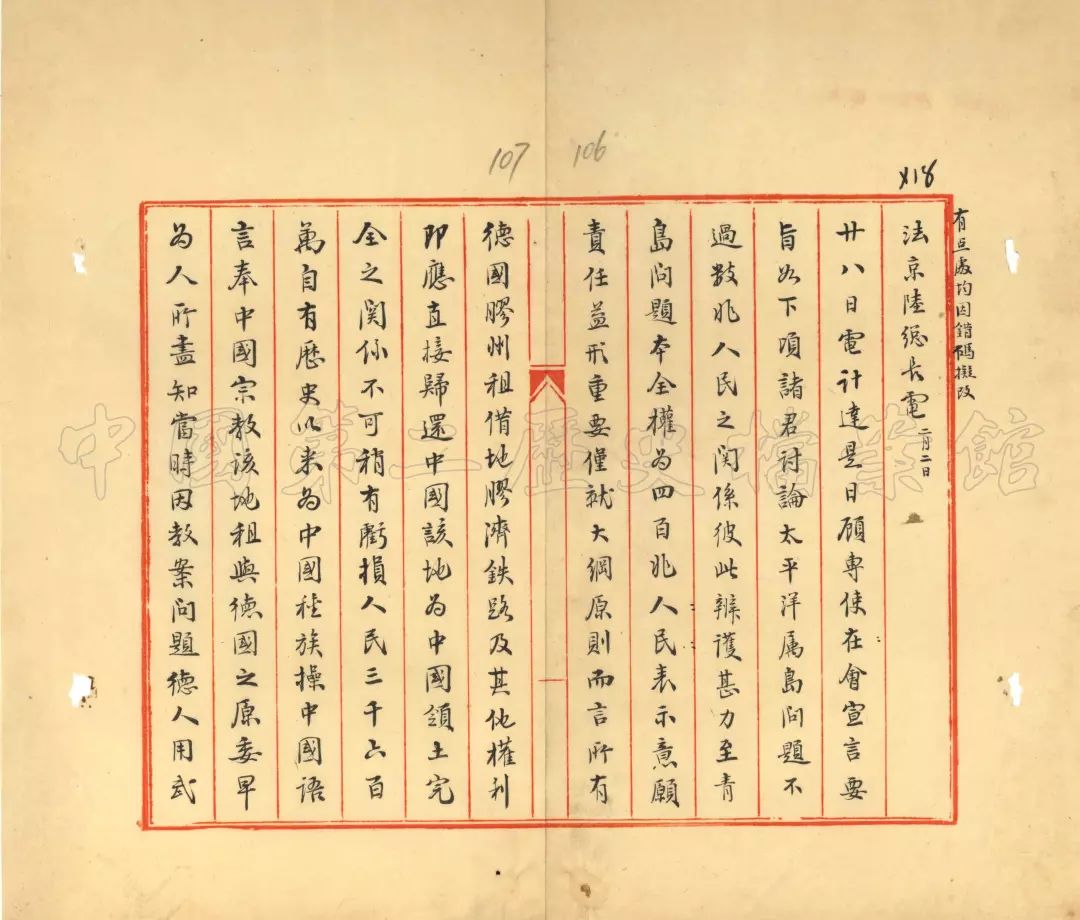 107
106
418
有点處均因錯碼擬改
法京陸總長電 二月二日
廿八日電計達是日顧專使在會宣言要
旨如下項諸君討論太平洋属島问題不
過数兆人民之関係彼此辨護甚力至青
島问題本全權为四百兆人民表示意願
責任益形重要僅就大綱原則而言所有
德國膠州租借地膠濟鉄路及其他權利
即應直接歸還中國該地为中國領土完
全之関係不可稍有虧損人民三千六百
萬自有歷史以来为中國種族操中國語
言奉中國宗教該地租與德國之原委早
为人所盡知當時因教案问題德人用武
中國第二歷史檔案館